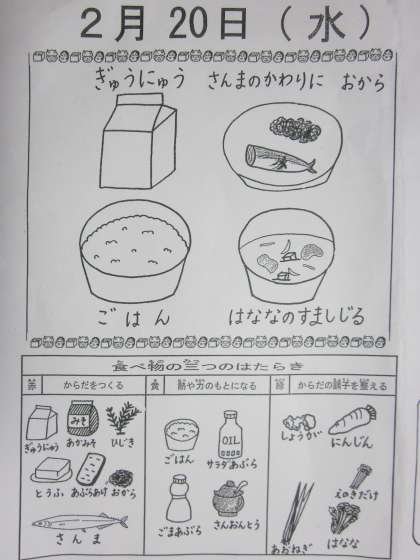 2月20日(水)
ぎゅうにゅう さんまのかわりに おから
ごはん はななのすましじる
食べ物の三つのはたらき
赤 からだをつくる
ぎゅうにゅう
みそ
あかみそ
ひじき
とうふ
あぶらあげ
おから
さんま
熱や力のもとになる
ごはん
OIL
サラダあぶら
ごまあぶら
さんおんとう
緑 からだの調子を整える
しょうが
にんじん
えのきだけ
あおねぎ
はなな